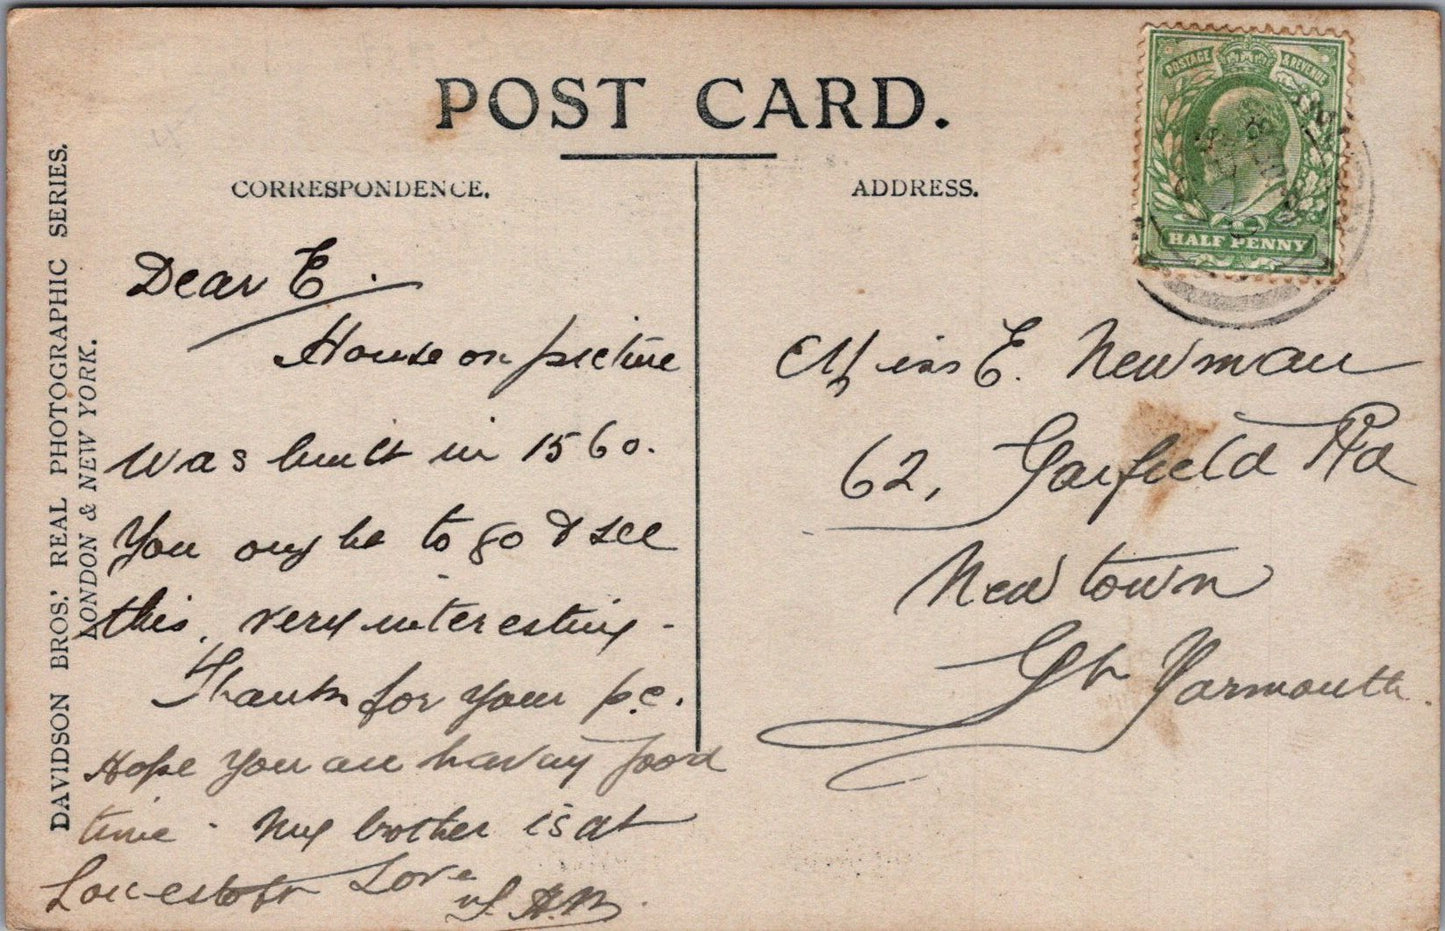 POST CARD.
CORRESPONDENCE.
ADDRESS.
POSTAGE & REVENUE
HALF PENNY
DAVIDSON BROS.' REAL PHOTOGRAPHIC SERIES.
LONDON & NEW YORK.
Dear E.
House on picture
was built in 1560.
You ought to go & see
this, very interesting -
Thanks for your p.c.
Hope you are having good
time. My brother is at
Lowestoft Love
Miss E. Newman
62, Garfield Rd
Newtown
Gt Yarmouth.